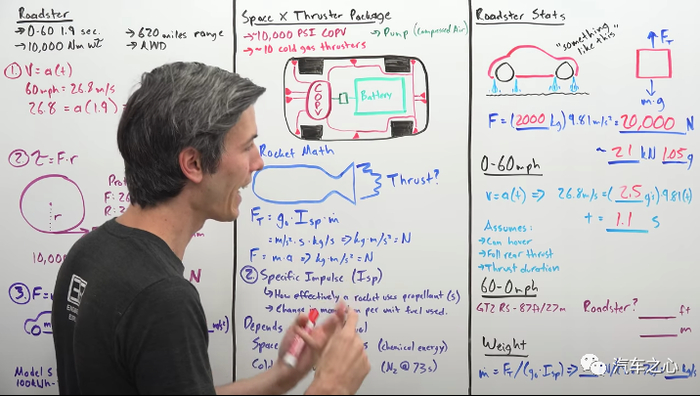 Roadster
→ 0-60 1.9 sec.
→ 620 miles range
→ 10,000 Nm wt
→ AWD
1. V = a(t)
60mph = 26.8 m/s
26.8 = a(1.9)
2. τ = F·r
r
F: 2
R: 3
10,00
N
3. F =
Model S
100kWh-
Space X Thruster Package
→ 10,000 PSI COPV
→ Pump (Compressed Air)
→ ~10 cold gas thrusters
COPV
Battery
Rocket Math
Thrust?
F_T = g₀·Isp·ṁ
= m/s²·s·kg/s ⇒ kg·m/s² = N
F = m·a ⇒ kg·m/s² = N
2 Specific Impulse (Isp)
↳ How effectively a rocket uses propellant (s)
→ Change in momentum per unit fuel used.
Depends
Space
(chemical energy)
Cold
(N₂ @ 73s)
Roadster Stats
"something like this"
F_T
m·g
F = (2000 kg) 9.81 m/s² = 20,000 N
~ 21 kN 1.05g
0-60mph
v = a(t) ⇒ 26.8 m/s = (2.5 g's) 9.81(t)
t = 1.1 s
Assumes:
→ Can hover
→ Full rear thrust
→ Thrust duration
60-0mph
GT2 RS - 87ft/27m
Roadster? ____ ft
____ m
Weight
ṁ = F_T/(g₀·Isp) ⇒
kg/s
汽车之心